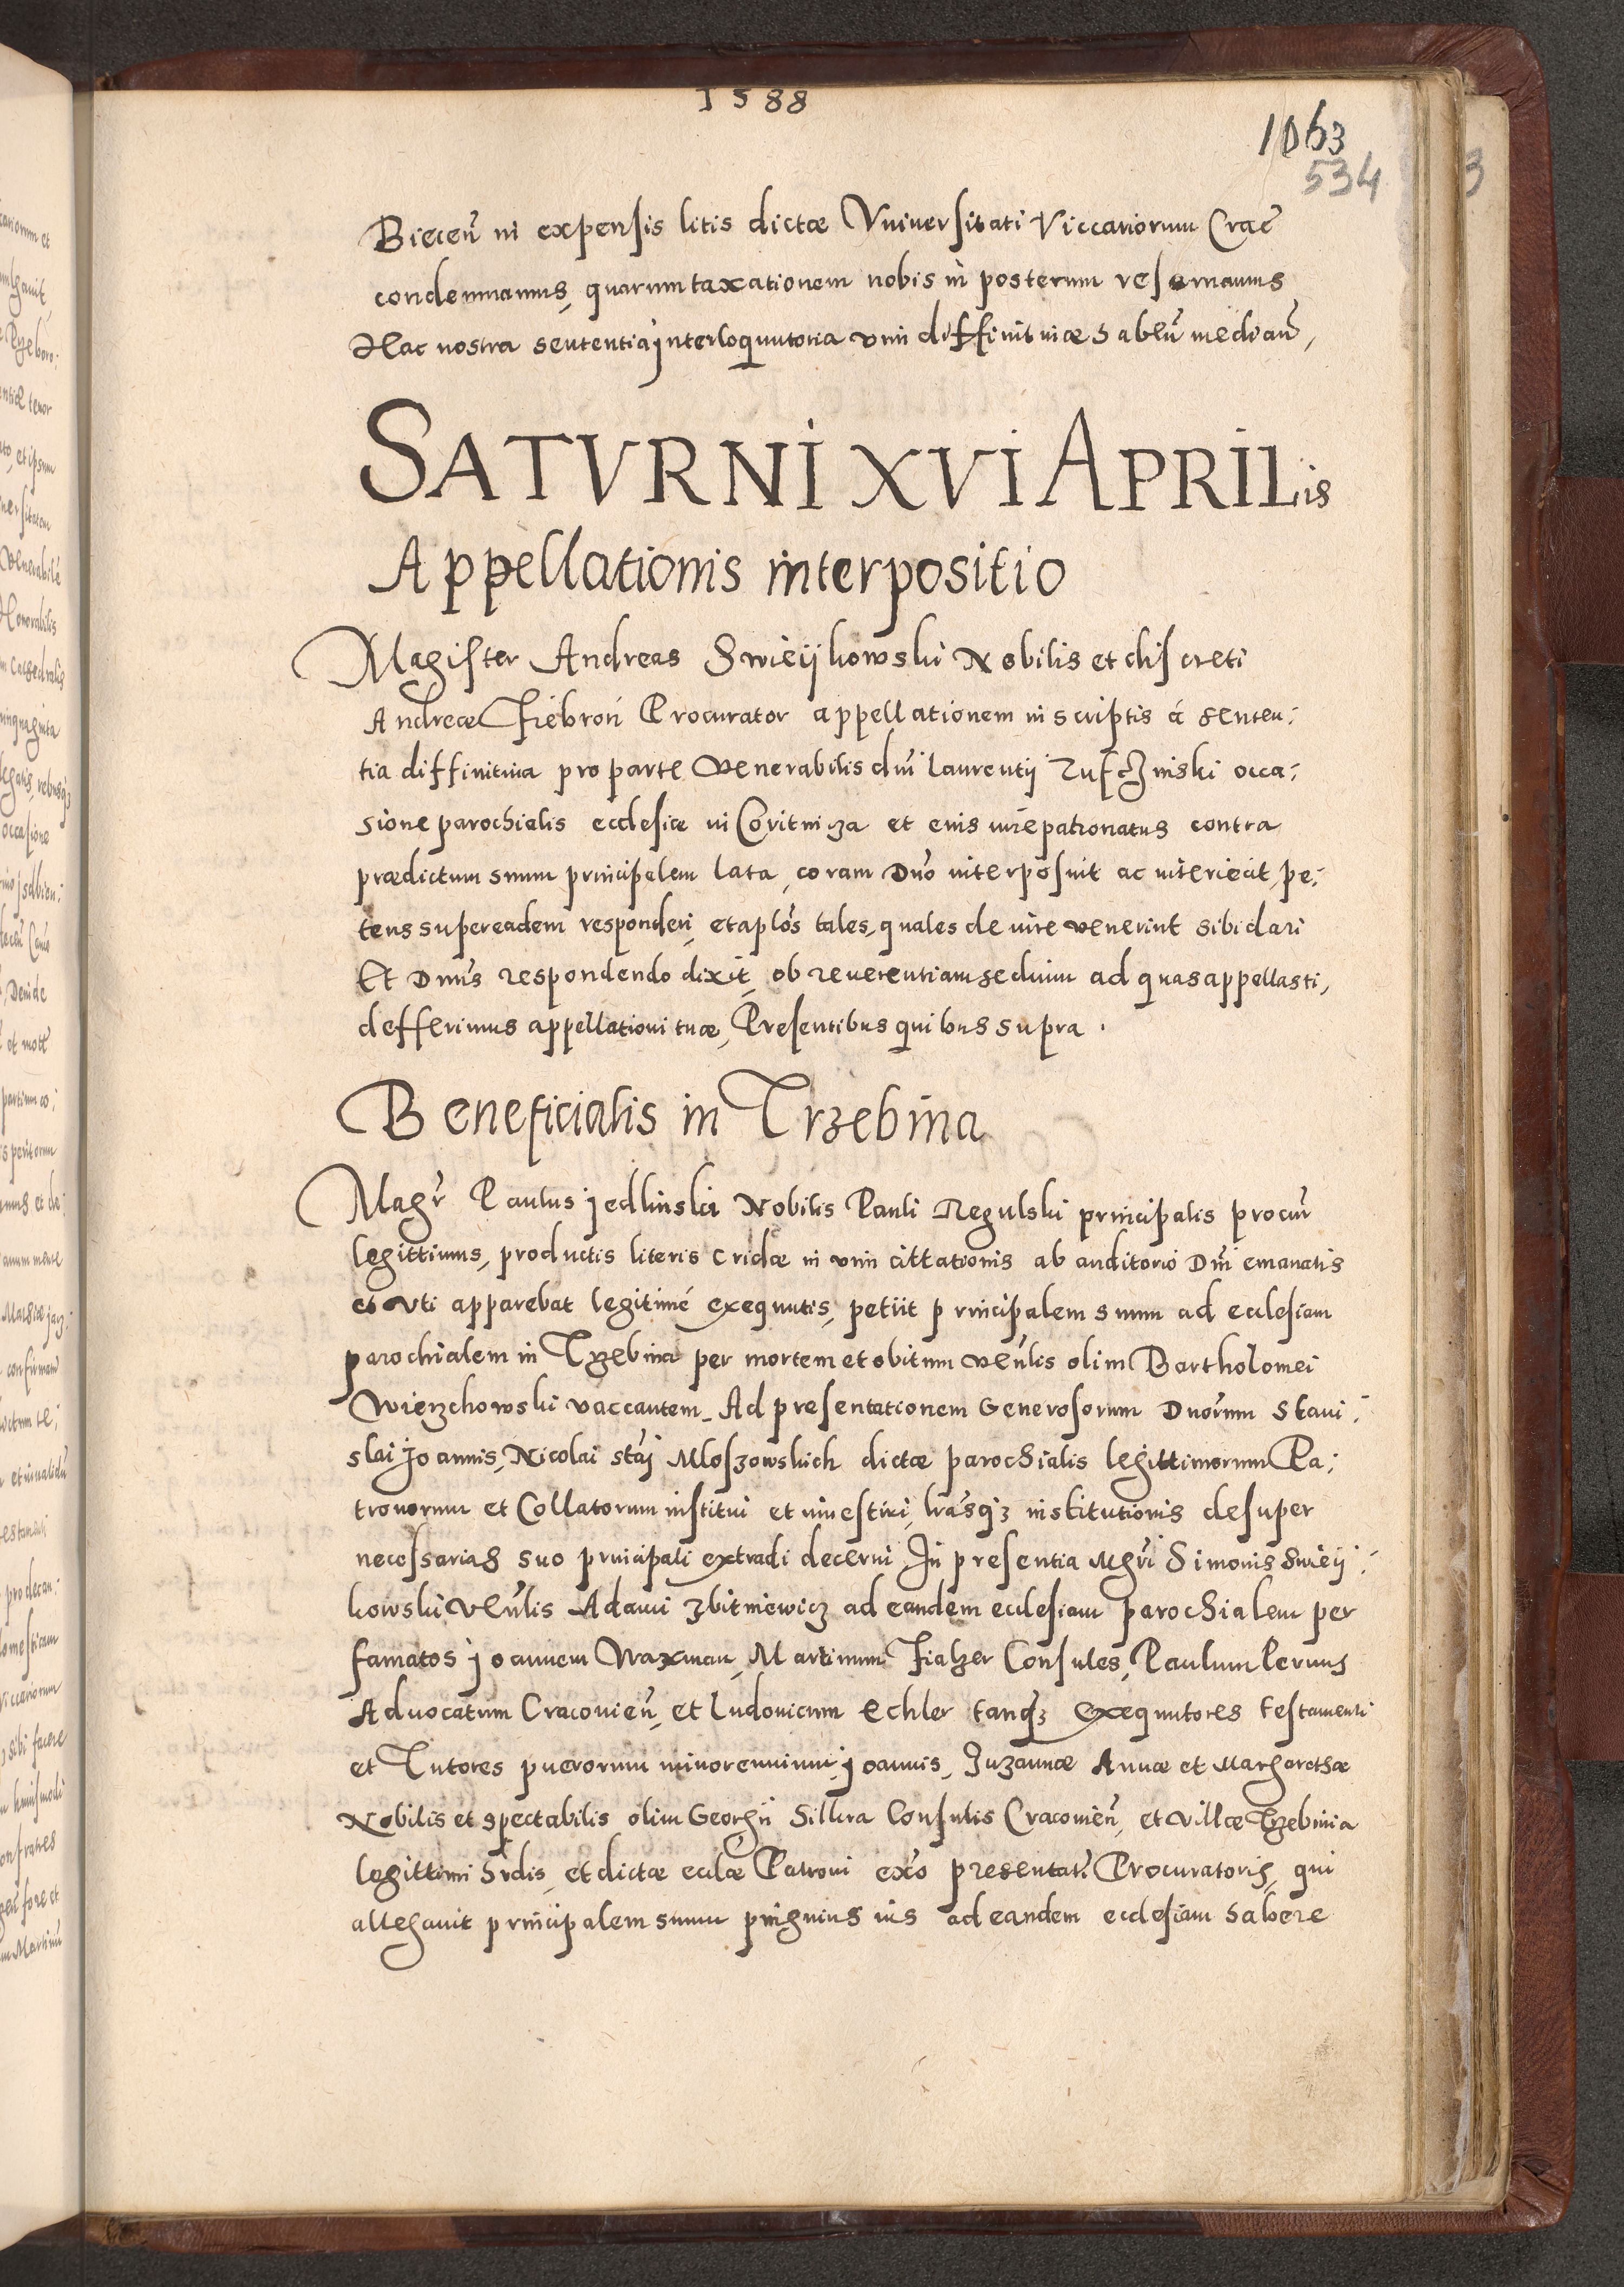 1588
1063
534
3
Biecen̄ in expensis litis dictæ Vniversitati Viccariorum Crac̄
condemnamus, quarum taxationem nobis in posterum reservamus
Hac nostra sententia interloquutoria vim diffinitivæ habeñ mediañ,
SATVRNI XVI APRILis
Appellationis interpositio
Magister Andreas Swieijkowski Nobilis et discreti
Andreæ Fiebron Procurator appellationem in scriptis à senten:
tia diffinitiva pro parte Venerabilis dn̄i Laurentij occa:
sione parochialis ecclesiæ in Coritnicza et eius iure patronatus contra
prædictum suum principalem lata, coram Dn̄o interposuit ac interiecit, pe:
tens super eadem responderi, et apl̄os tales, quales de iure venerint sibi dari
Et Dn̄us respondendo dixit, ob reverentiam sedium ad quas appellasti,
defferimus appellationi tuæ, Presentibus quibus supra.
Beneficialis in Trzebinia
Magr̄ Paulus Jedlinski Nobilis Pauli Regulski principalis procur̄
legittimus, productis literis cridæ in vim cittationis ab auditorio Dn̄i emanatis
et vti apparebat legitimé exequutis, petiit principalem suum ad ecclesiam
parochialem in Trzebinia per mortem et obitum ven̄lis olim Bartholomei
Wierzchowski vaccantem, Ad presentationem Generosorum Dn̄orum Stani:
slai Joannis, Nicolai Mloszowskich dictæ parochialis legittimorum Pa:
tronorum et Collatorum institui et investiri, lr̄asq3 institutionis desuper
necessarias suo principali extradi decerni, In presentia Mgr̄i Simonis Swieij:
kowski ven̄lis Adami Zbitniewicz ad eandem ecclesiam parochialem per
famatos Joannem Waxman, Martinum Fialzer Consules, Paulum Pernus
Advocatum Cracovien̄, et Ludovicum Echler tanq3 exequutores testamenti
et Tutores puerorum minorennium Joannis, Zuzannæ Annæ et Margarethæ
Nobilis et spectabilis olim Georgii Consulis Cracovien̄, et villæ Trzebinia
legittimi hr̄dis, et dictæ eccl̄æ Patroni presentati Procuratoris, qui
allegavit principalem suum pinguius ius ad eandem ecclesiam habere